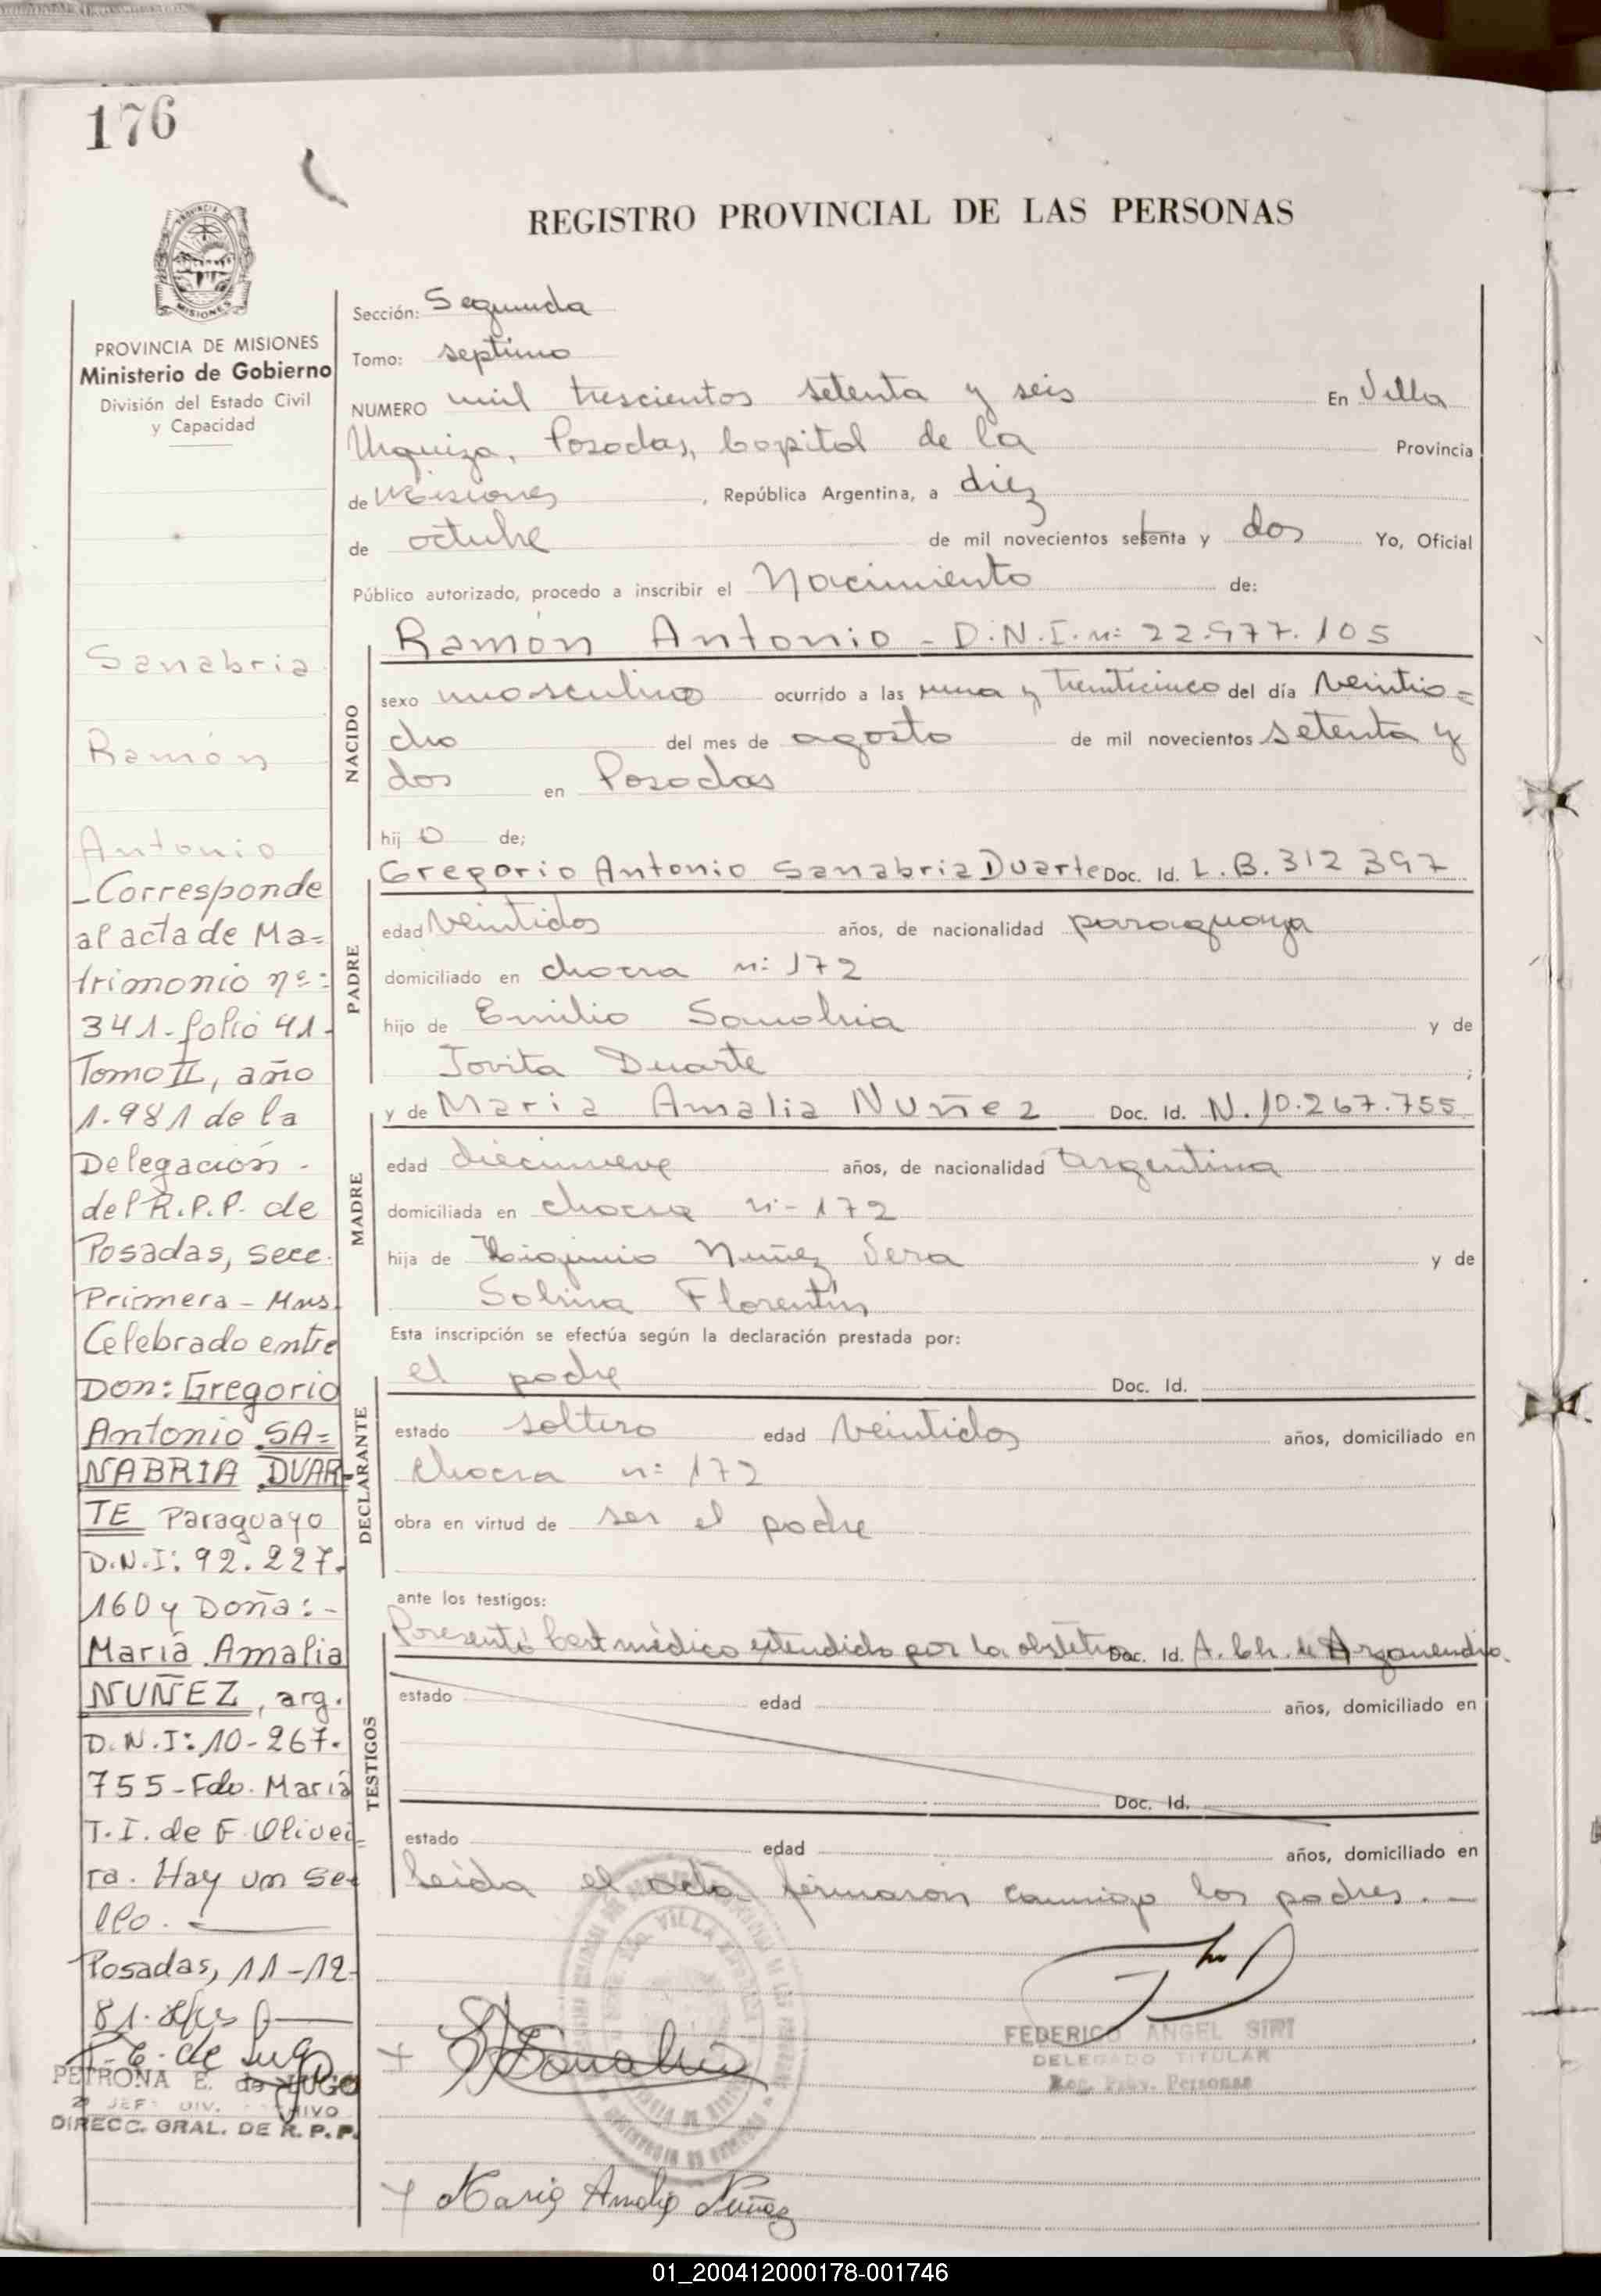 176
REGISTRO PROVINCIAL DE LAS PERSONAS
PROVINCIA DE MISIONES
Ministerio de Gobierno
División del Estado Civil
y Capacidad
Sanabria
Ramón
Antonio
-Corresponde
al acta de Ma=
trimonio nº:
341-folio 41-
Tomo II, año
1.981 de la
Delegación-
del R.P.P. de
Posadas, secc.
Primera-Mns.
Celebrado entre
Don: Gregorio
Antonio SA=
NABRIA DUAR-
TE Paraguayo
D.N.I: 92.227.
160 y Doña:-
María Amalia
NUÑEZ, arg.
D.N.I: 10-267.
755-Fdo. María
T.I. de F. Olivei-
ra. Hay un se-
llo.
Posadas, 11-12-
81.
E. de Lugo
PETRONA E. de LUGO
JEF DIV. CHIVO
DIRECC. GRAL. DE R.P.P.
Sección: Segunda
Tomo: septimo
NUMERO mil trescientos setenta y seis En Villa
Urquiza, Posadas, Capital de la Provincia
de Misiones, República Argentina, a diez
de octubre de mil novecientos setenta y dos Yo, Oficial
Público autorizado, procedo a inscribir el Nacimiento de:
NACIDO
Ramón Antonio - D.N.I. n: 22.977.105
sexo masculino ocurrido a las una y treinticinco del día veintio=
cho del mes de agosto de mil novecientos setenta y
dos en Posadas
hijo de;
PADRE
Gregorio Antonio Sanabria Duarte Doc. Id. L.B. 312 397
edad veintidos años, de nacionalidad paraguaya
domiciliado en chacra n: 172
hijo de Emilio Sanabria y de
Jovita Duarte ;
MADRE
y de Maria Amalia Nuñez Doc. Id. N. 10.267.755
edad diecinueve años, de nacionalidad argentina
domiciliada en chacra n- 172
hija de Higinio Nuñez Vera y de
Sabina Florentín
Esta inscripción se efectúa según la declaración prestada por:
DECLARANTE
el padre Doc. Id.
estado soltero edad veintidos años, domiciliado en
chacra n: 172
obra en virtud de ser el padre
ante los testigos:
TESTIGOS
Presentó Cert médico extendido por la obstetra Doc. Id. A. Ch. de Arganendia.
estado edad años, domiciliado en
Doc. Id.
estado edad años, domiciliado en
Leida el acta firmaron conmigo los padres. -
FEDERICO ANGEL SIRI
DELEGADO TITULAR
Reg. Prov. Personas
Sanabria
Maria Amalia Nuñez
01_200412000178-001746